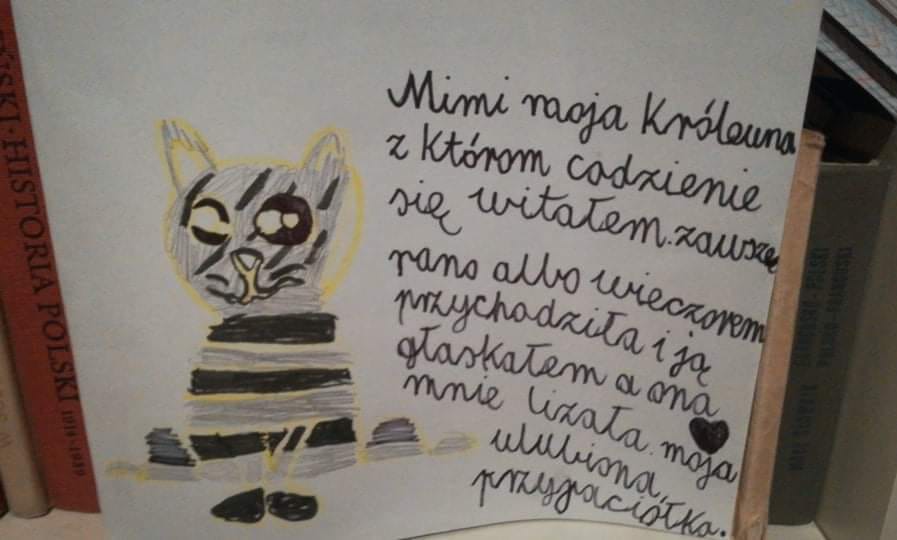 Mimi moja Królewna
z Którom codzienie
się witałem. zawsze
rano albo wieczorem
przychodziła i ją
głaskałem a ona
mnie lizała. moja
ulubiona,
przyjaciółka.
HISTORIA POLSKI 1914-1939